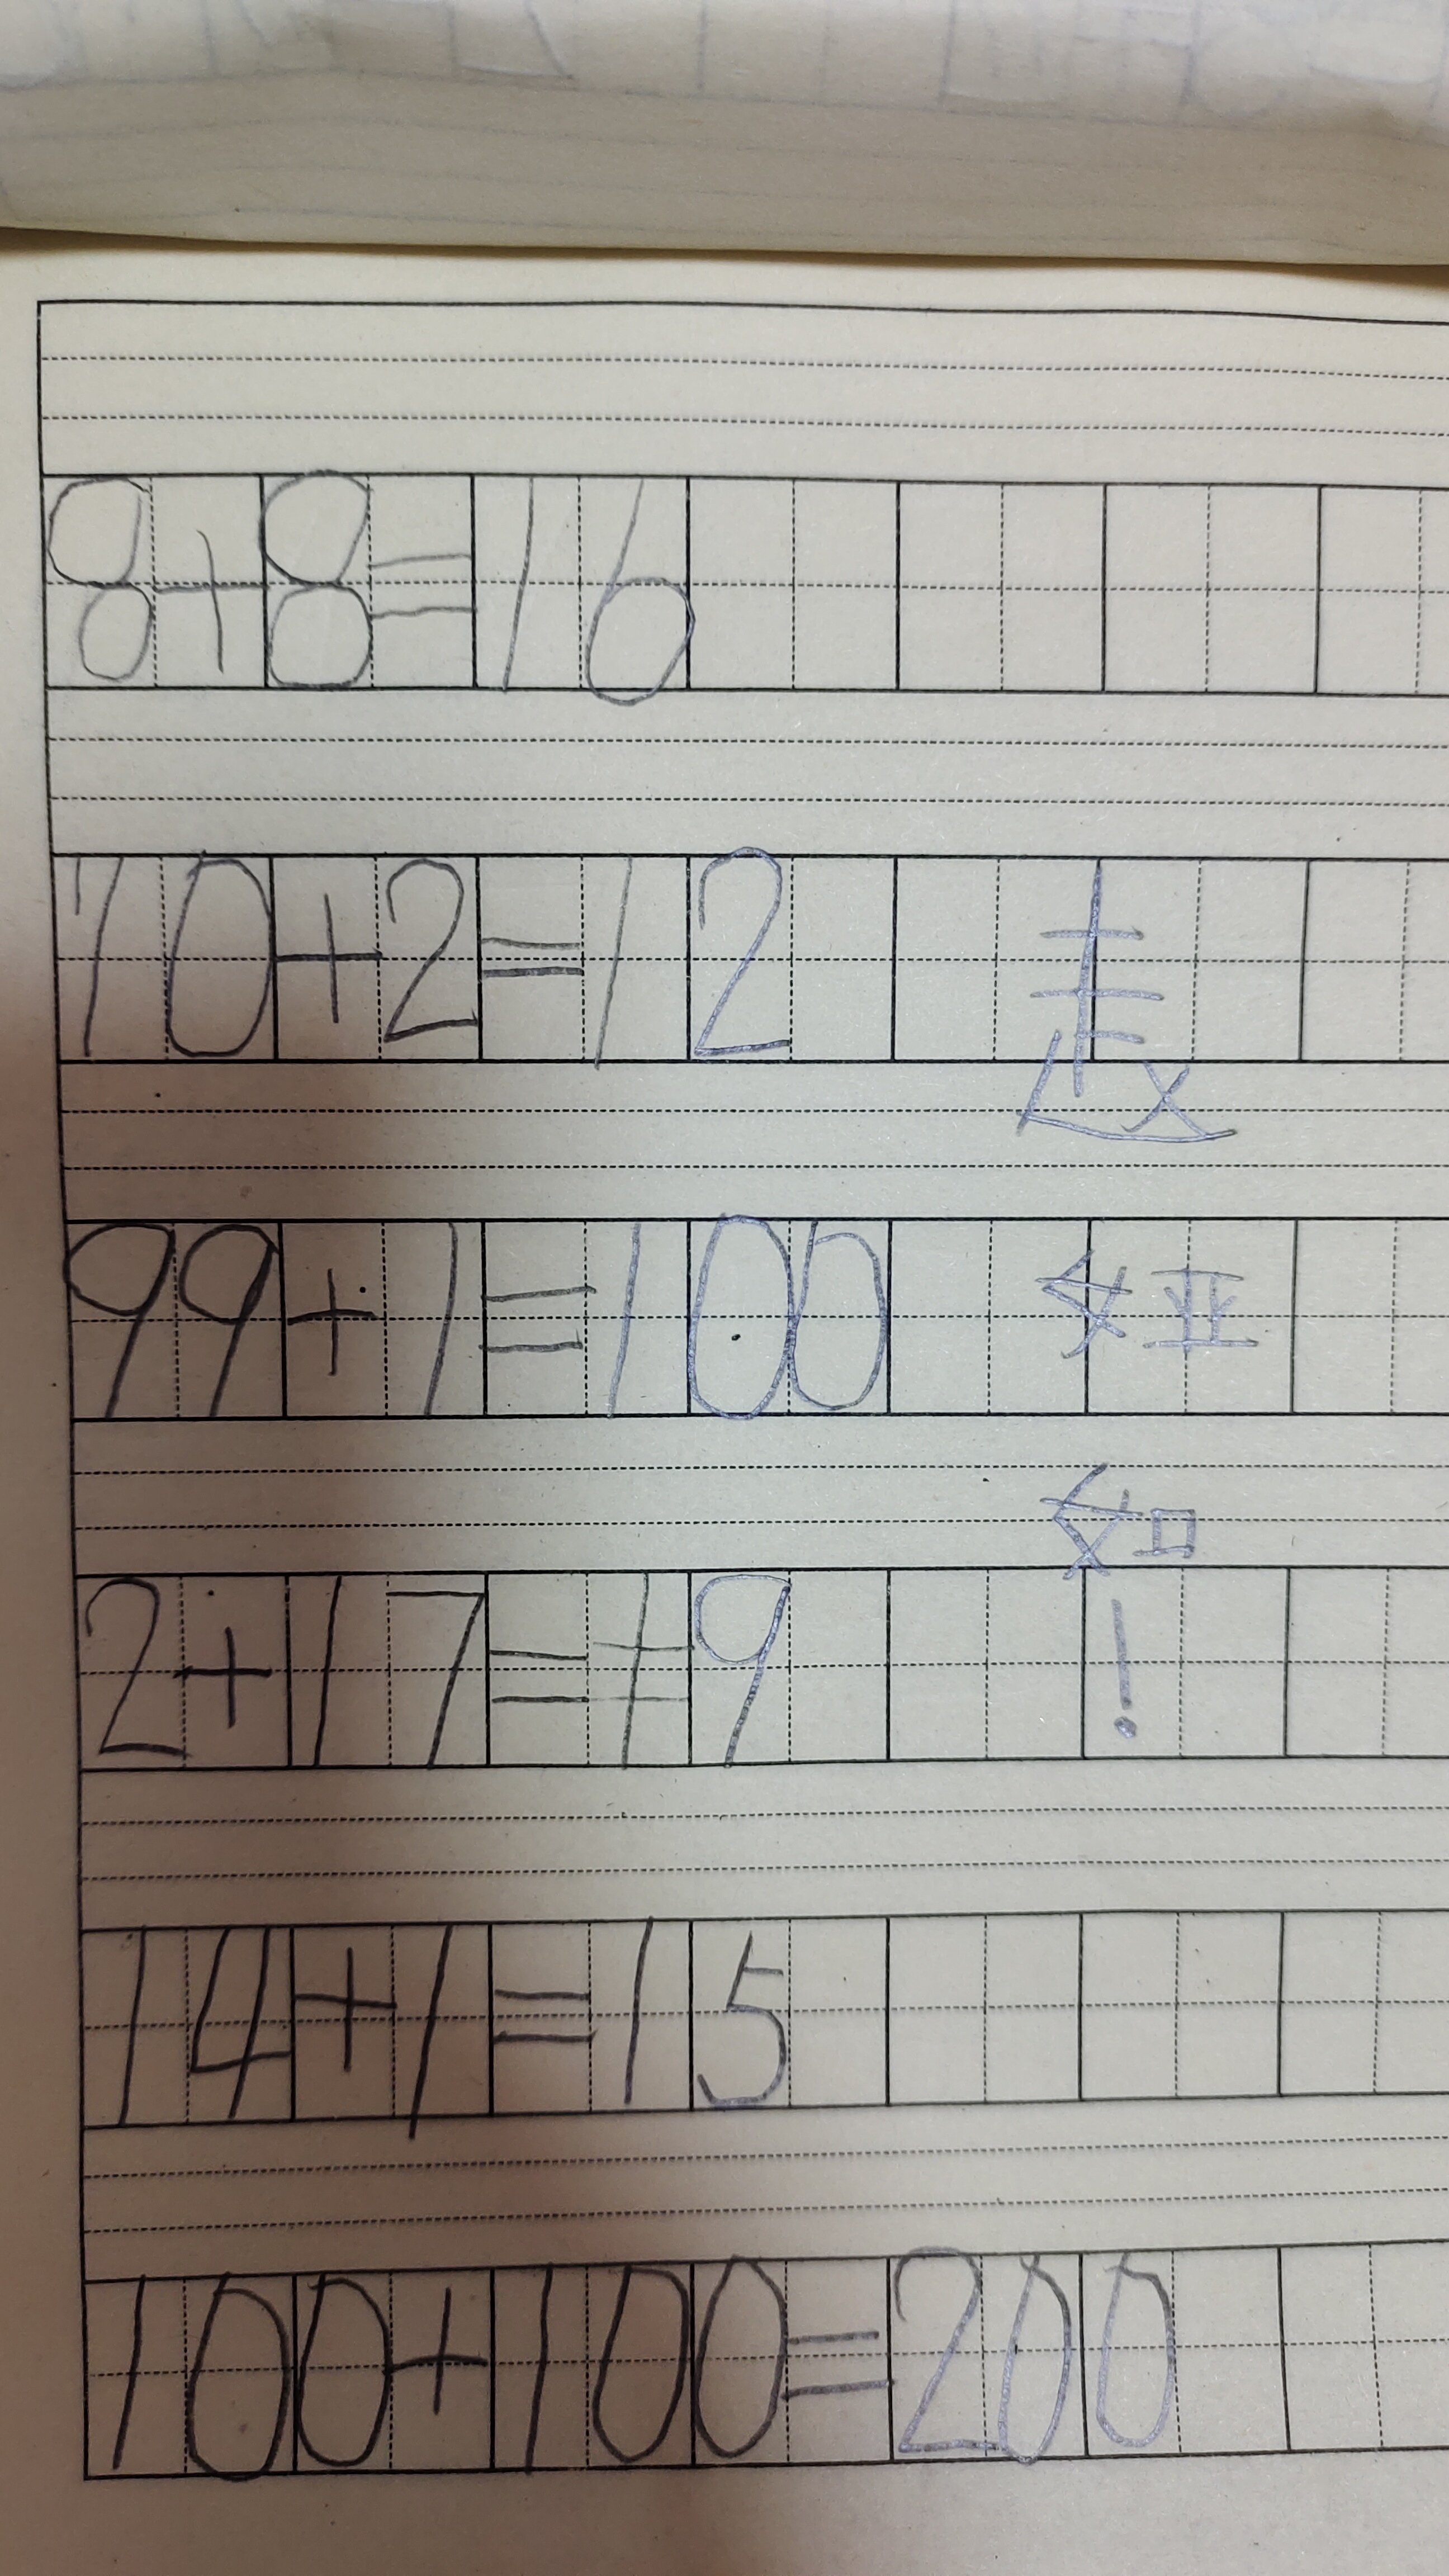 8+8=16
70+2=12
赵
99+1=100
娅
如
2+17=19
!
14+1=15
100+100=200